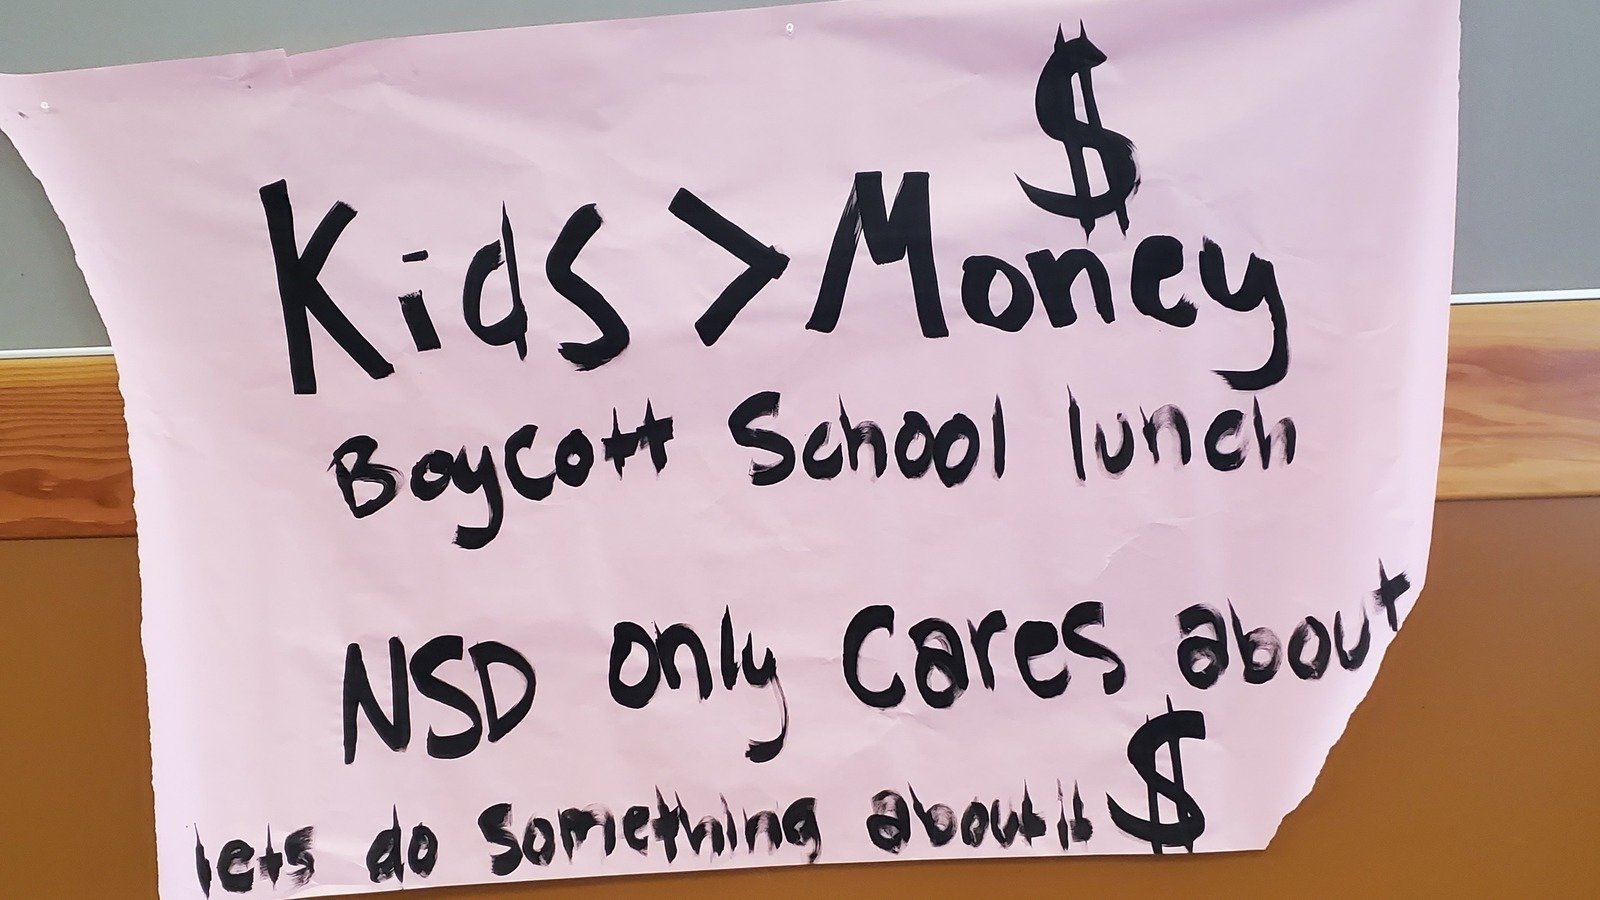 $
Kids > Money
Boycott School lunch
NSD only cares about
$
lets do something about it